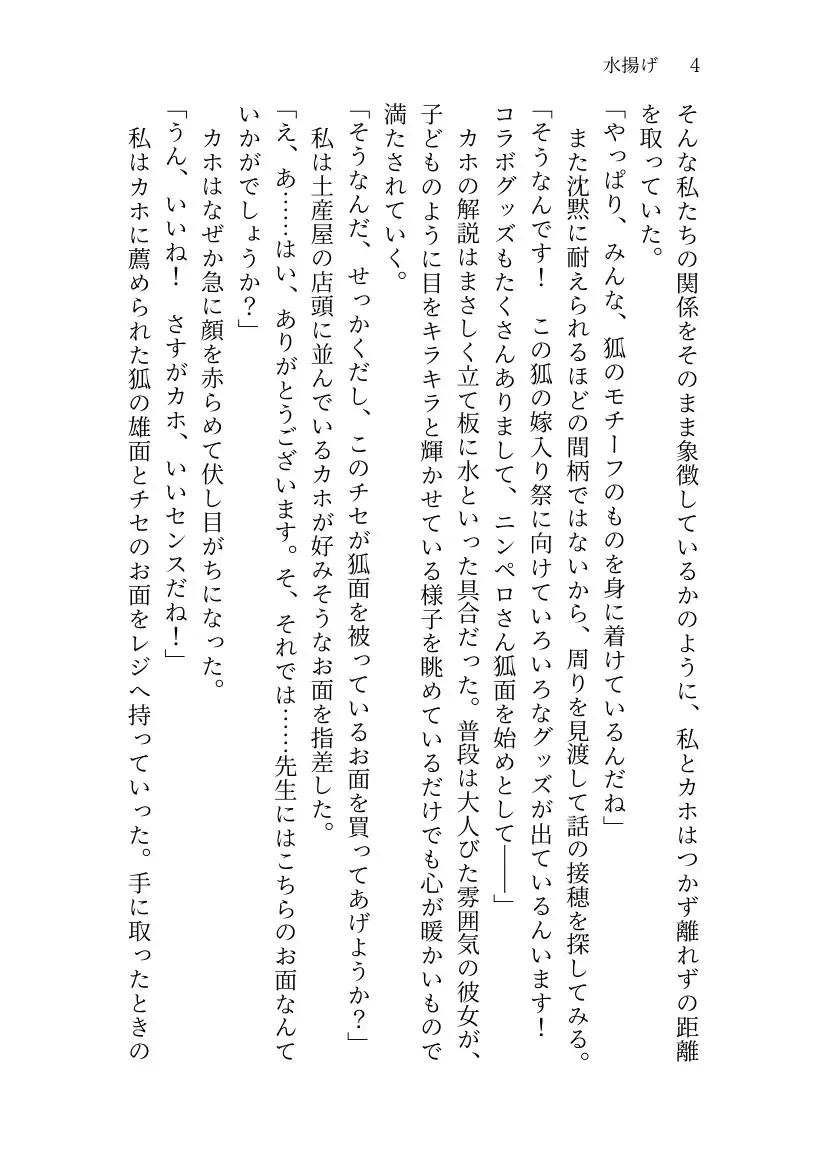 水揚げ　4
そんな私たちの関係をそのまま象徴しているかのように、私とカホはつかず離れずの距離
を取っていた。
「やっぱり、みんな、狐のモチーフのものを身に着けているんだね」
　また沈黙に耐えられるほどの間柄ではないから、周りを見渡して話の接穂を探してみる。
「そうなんです！　この狐の嫁入り祭に向けていろいろなグッズが出ているんいます！
コラボグッズもたくさんありまして、ニンペロさん狐面を始めとして――」
　カホの解説はまさしく立て板に水といった具合だった。普段は大人びた雰囲気の彼女が、
子どものように目をキラキラと輝かせている様子を眺めているだけでも心が暖かいもので
満たされていく。
「そうなんだ、せっかくだし、このチセが狐面を被っているお面を買ってあげようか？」
　私は土産屋の店頭に並んでいるカホが好みそうなお面を指差した。
「え、あ……はい、ありがとうございます。そ、それでは……先生にはこちらのお面なんて
いかがでしょうか？」
　カホはなぜか急に顔を赤らめて伏し目がちになった。
「うん、いいね！　さすがカホ、いいセンスだね！」
　私はカホに薦められた狐の雄面とチセのお面をレジへ持っていった。手に取ったときの